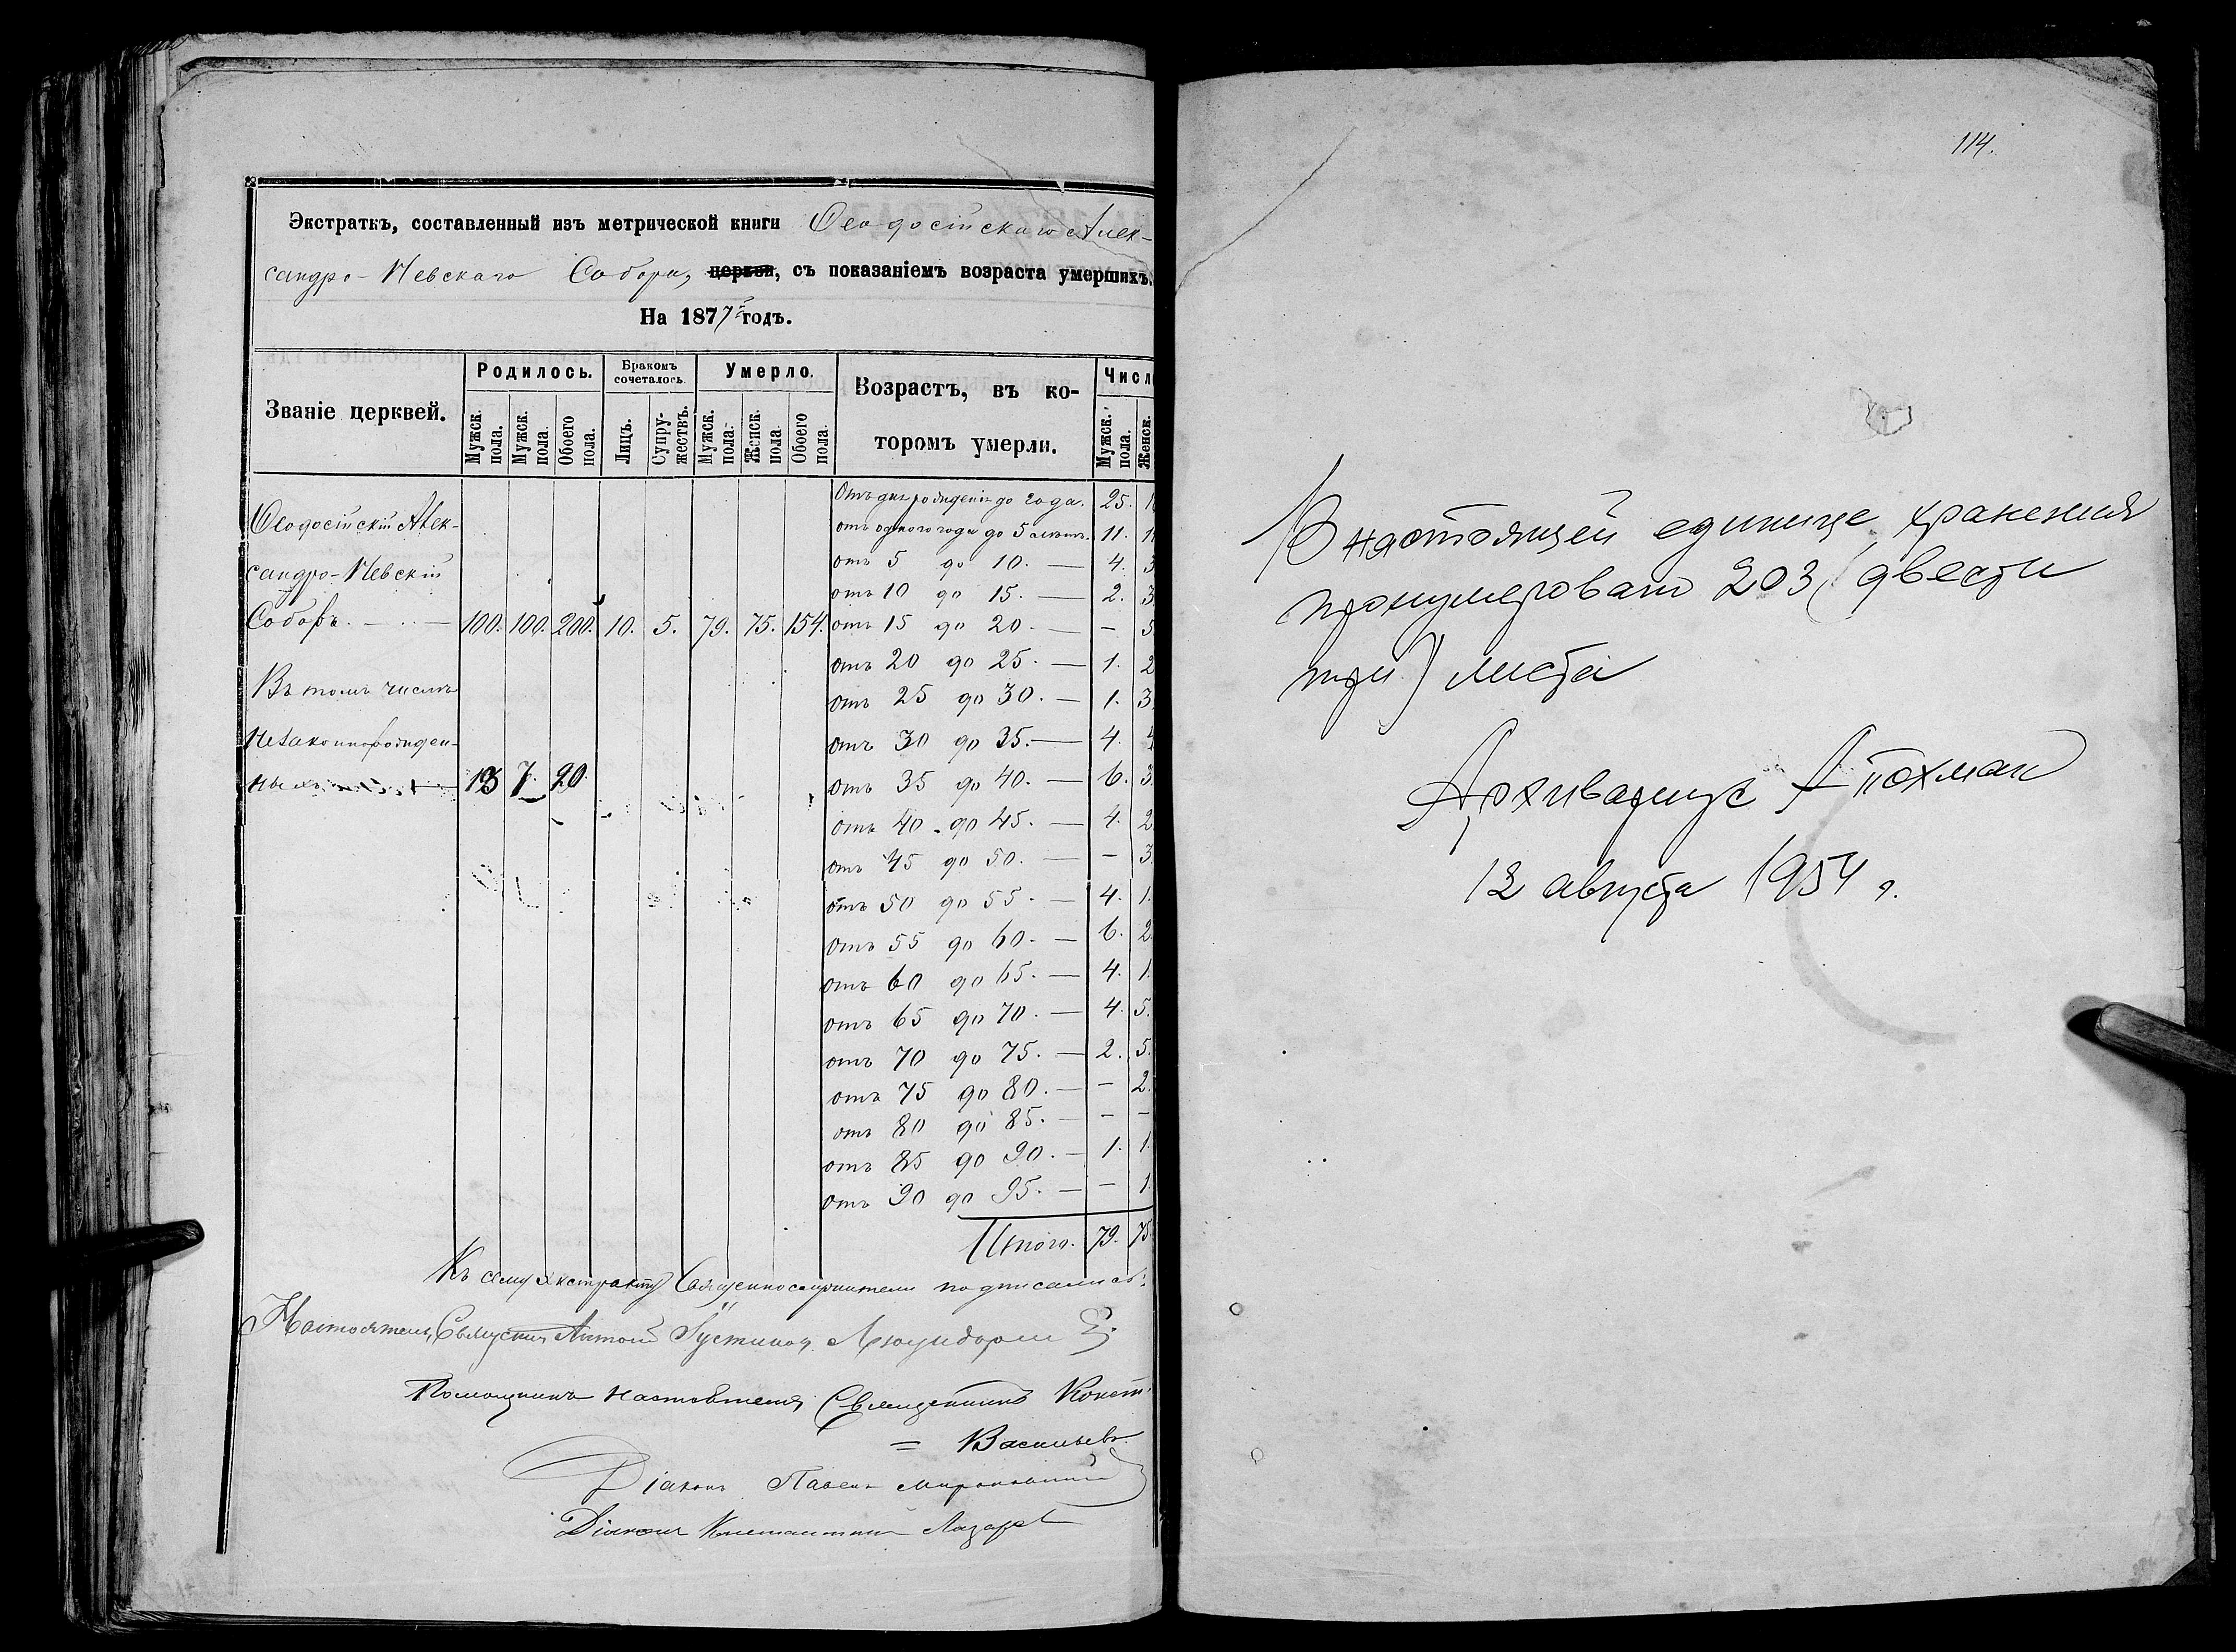 Экстрактъ, составленный изъ метрической книги Ѳеодосійскаго Алек-
сандро-Невскаго Собора, церкви, съ показаніемъ возраста умершихъ.
На 1877 годъ.
Званіе церквей. Родилось. Бракомъ сочеталось. Умерло. Возрастъ, въ ко- Числ
торомъ умерли.
Мужск. пола. Мужск. пола. Обоего пола. Лицъ. Супру-жествъ. Мужск. пола. Женск. пола. Обоего пола. Мужск. пола. Женск.
Отъ дня рожденія до года. 25.
Ѳеодосійскій Алек- отъ одного года до 5 лѣтъ. 11.
отъ 5 до 10. — 4. 3
сандро-Невскій
отъ 10 до 15. — 2. 3.
Соборъ. — 100. 100. 200. 10. 5. 79. 75. 154. отъ 15 до 20. — – 5
отъ 20 до 25. — 1. 2
Въ томъ числѣ отъ 25 до 30. — 1. 3.
незаконнорожден- отъ 30 до 35. — 4. 4
ныхъ — 13 7. 20. отъ 35 до 40. — 6. 3.
отъ 40 до 45. — 4. 2
отъ 45 до 50. — – 3.
отъ 50 до 55. — 4. 1.
отъ 55 до 60. — 6. 2.
отъ 60 до 65. — 4. 1.
отъ 65 до 70. — 4. 5.
отъ 70 до 75. — 2. 5.
отъ 75 до 80. — – 2.
отъ 80 до 85. — – –
отъ 85 до 90. — 1. 1.
отъ 90 до 95. — – 1.
Итого. 79. 75.
Къ сему экстракту Священнослужители подписались:
Настоятель, Священникъ Антоній
Помощникъ настоятеля, Священникъ Конст.
= Васильевъ.
Діаконъ Павелъ
Діаконъ Константинъ
114.
В настоящей единице хранения
пронумеровано 203 (двести
три) листа
Архивариус
12 августа 1954 г.